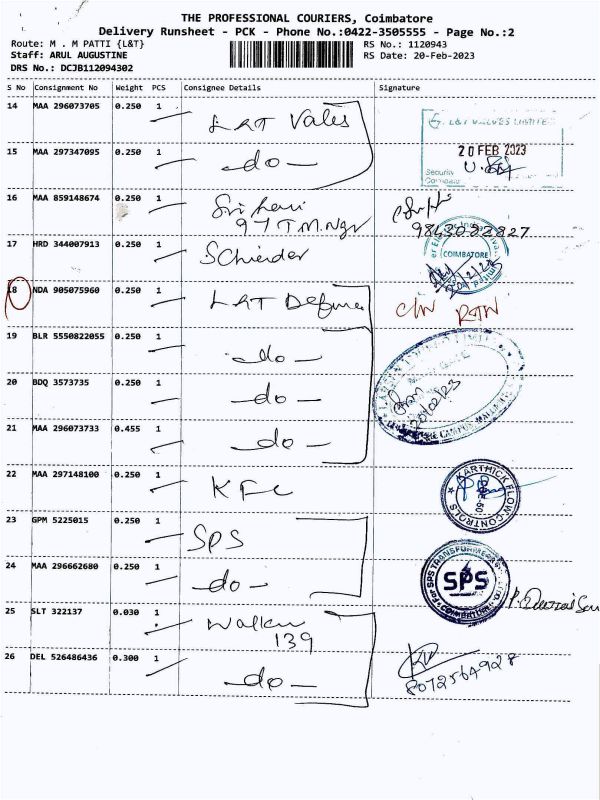 THE PROFESSIONAL COURIERS, Coimbatore
Delivery Runsheet - PCK - Phone No.:0422-3505555 - Page No.:2
Route: M . M PATTI {L&T}
RS No.: 1120943
Staff: ARUL AUGUSTINE
RS Date: 20-Feb-2023
DRS No.: DCJB112094302
S No Consignment No Weight PCS Consignee Details Signature
14 MAA 296073705 0.250 1
L&T Valves LIMITED
20 FEB 2023
Security
15 MAA 297347095 0.250 1
- do -
16 MAA 859148674 0.250 1
Sri Hari
97 T.M.Ngr
9843022827
17 HRD 344007913 0.250 1
COIMBATORE
18 NDA 905075960 0.250 1
L&T Defence
C/W RTN
19 BLR 5550822055 0.250 1
- do -
MAIN GATE
20 BDQ 3573735 0.250 1
- do -
20/02/23
21 MAA 296073733 0.455 1
- do -
22 MAA 297148100 0.250 1
KFC
KARTHICK FLOW CONTROLS
23 GPM 5225015 0.250 1
SPS
24 MAA 296662680 0.250 1
- do -
SPS
COIMBATORE
25 SLT 322137 0.030 1
139
26 DEL 526486436 0.300 1
- do -
8072564928